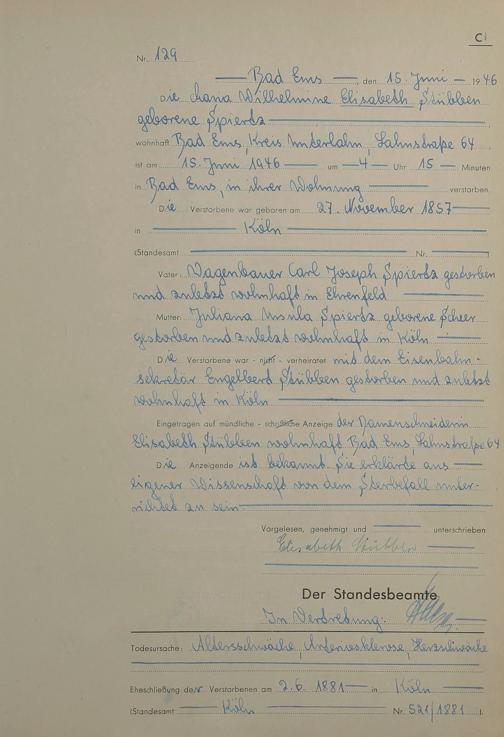 C
Nr. 129
Bad Ems, den 15. Juni 1946
Die Maria Wilhelmine Elisabeth Stübben
geborene Spiertz
wohnhaft Bad Ems, Kreis Unterlahn, Lahnstraße 64
ist am 15. Juni 1946 um 4 Uhr 15 Minuten
in Bad Ems, in ihrer Wohnung verstorben.
Die Verstorbene war geboren am 27. November 1857
in Köln
(Standesamt Nr. )
Vater: Wagenbauer Carl Joseph Spiertz gestorben
und zuletzt wohnhaft in Ehrenfeld
Mutter: Juliana Ursula Spiertz geborene Scheer
gestorben und zuletzt wohnhaft in Köln
Die Verstorbene war - nicht - verheiratet mit dem Eisenbahn-
sekretär Engelbert Stübben gestorben und zuletzt
wohnhaft in Köln
Eingetragen auf mündliche - schriftliche Anzeige der Damenschneiderin
Elisabeth Stübben wohnhaft Bad Ems, Lahnstraße 64
Die Anzeigende ist bekannt. Sie erklärte aus
eigener Wissenschaft von dem Sterbefall unter-
richtet zu sein
Vorgelesen, genehmigt und unterschrieben
Elisabeth Stübben
Der Standesbeamte
In Vertretung:
Todesursache: Altersschwäche, Arteriosklerose, Herzschwäche
Eheschließung der Verstorbenen am 2.6.1881 in Köln
(Standesamt Köln Nr. 521/1881 ).